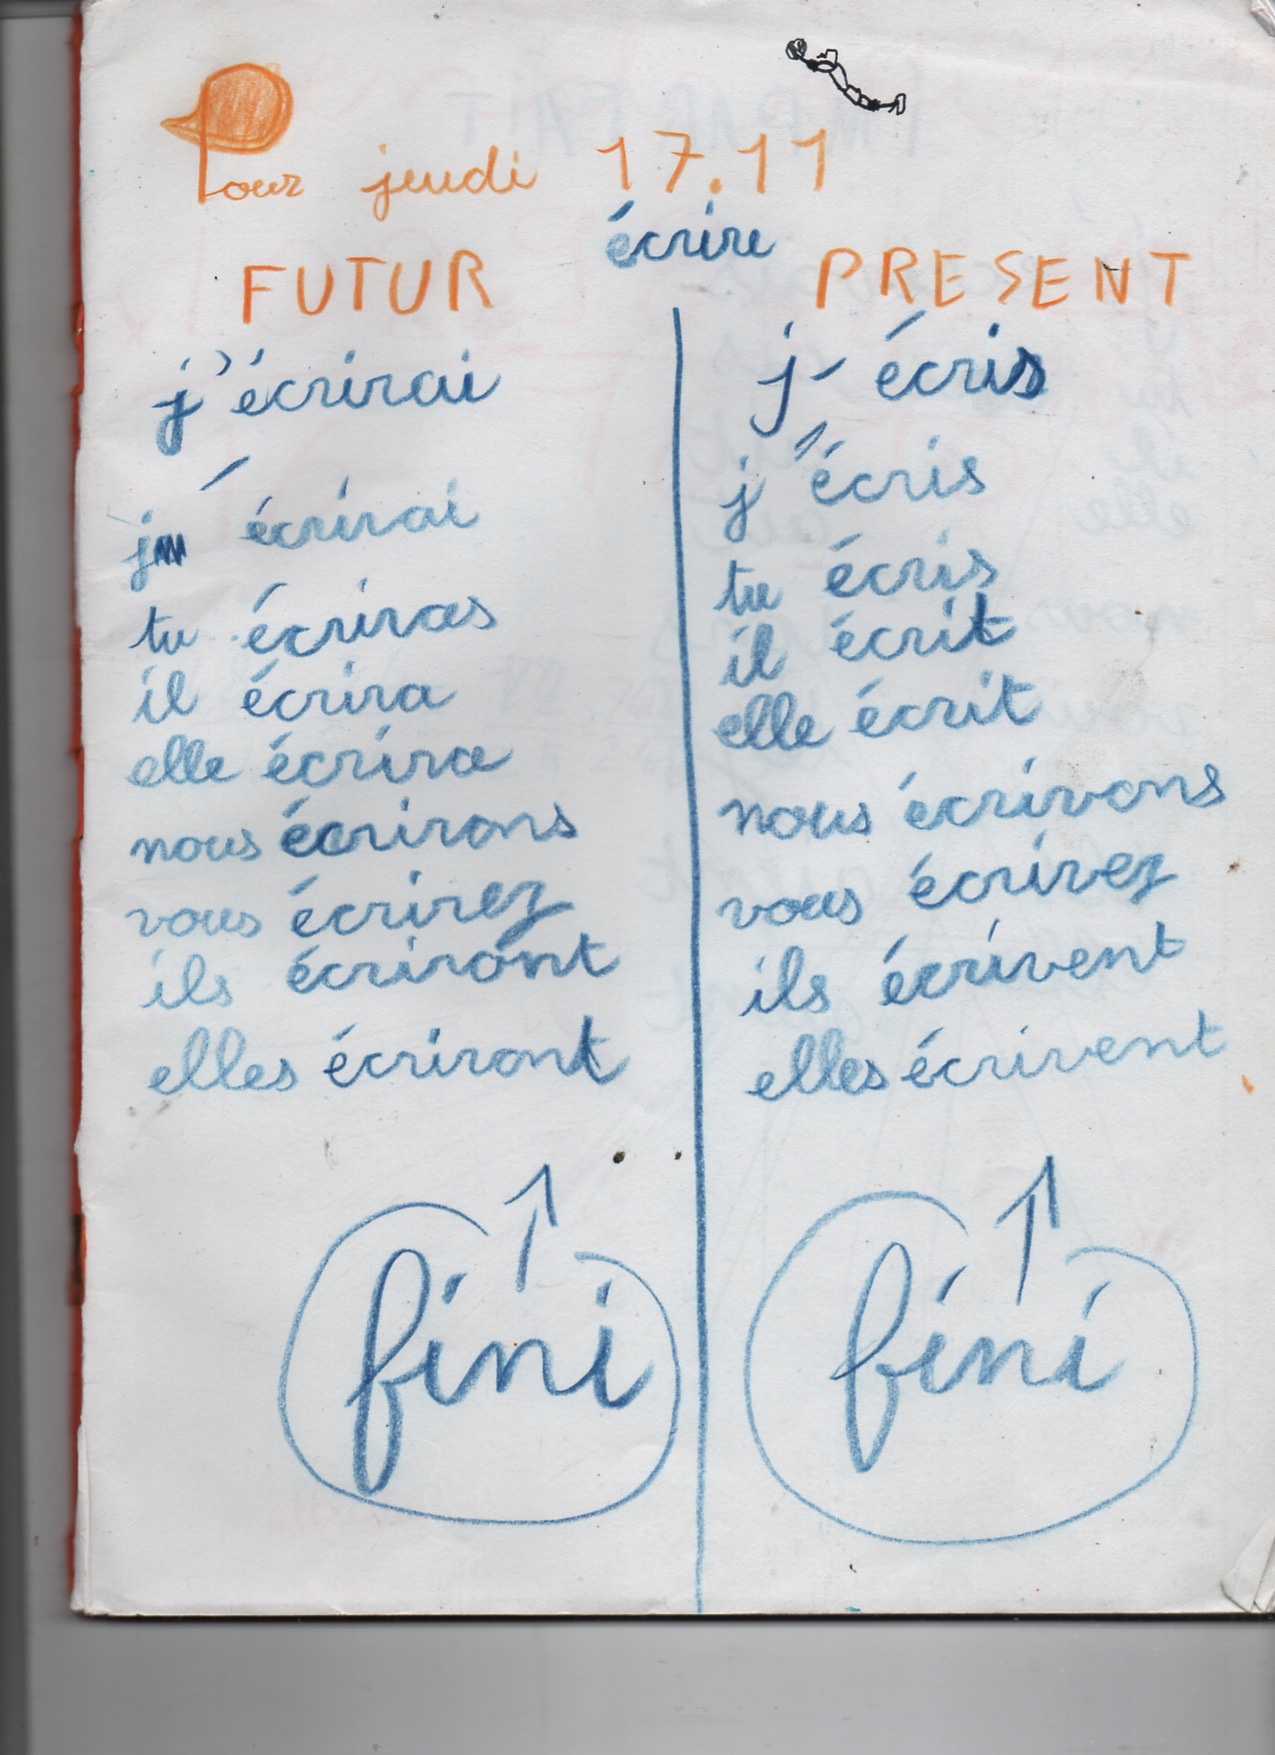 Pour jeudi 17.11
écrire
FUTUR
j'écrirai
j' écrirai
tu écriras
il écrira
elle écrira
nous écrirons
vous écrirez
ils écriront
elles écriront
fini
PRESENT
j' écris
j'écris
tu écris
il écrit
elle écrit
nous écrivons
vous écrivez
ils écrivent
elles écrivent
fini